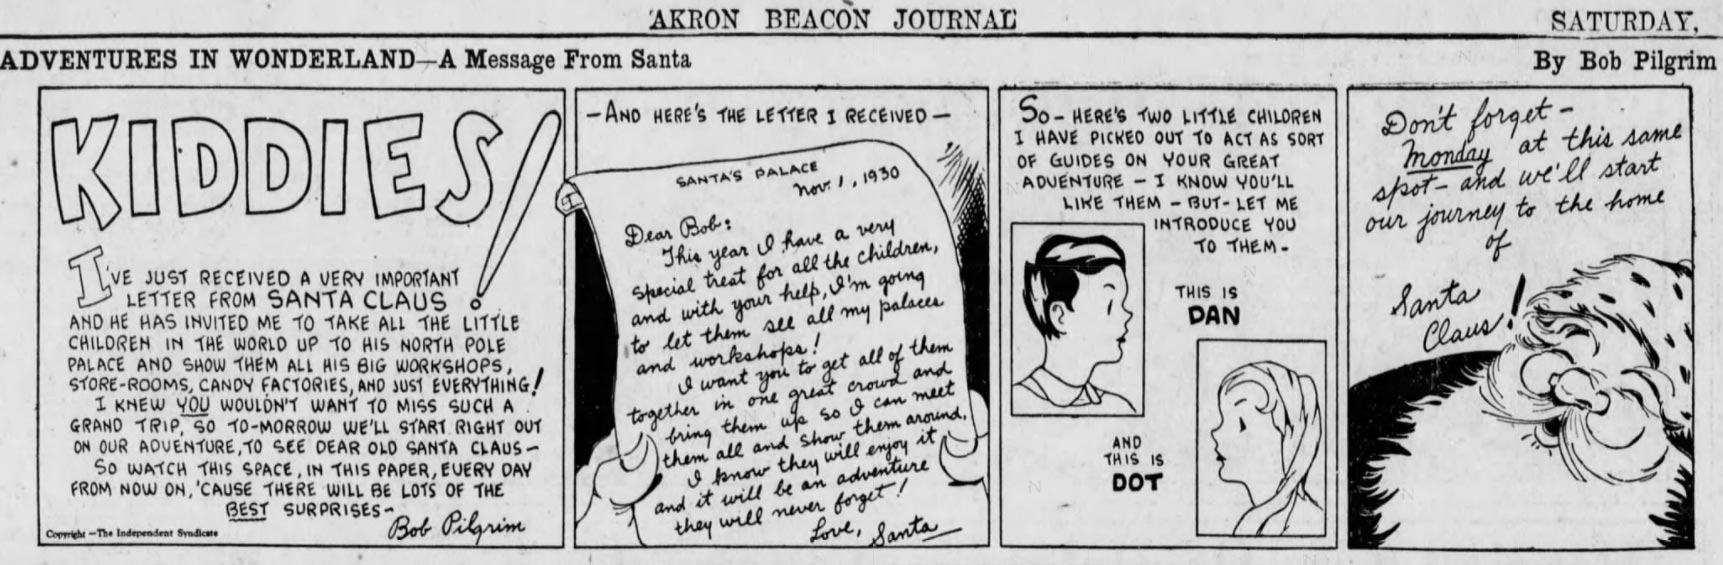 AKRON BEACON JOURNAL
SATURDAY,
ADVENTURES IN WONDERLAND—A Message From Santa
By Bob Pilgrim
KIDDIES!
I'VE JUST RECEIVED A VERY IMPORTANT
LETTER FROM SANTA CLAUS!
AND HE HAS INVITED ME TO TAKE ALL THE LITTLE
CHILDREN IN THE WORLD UP TO HIS NORTH POLE
PALACE AND SHOW THEM ALL HIS BIG WORKSHOPS,
STORE-ROOMS, CANDY FACTORIES, AND JUST EVERYTHING!
I KNEW YOU WOULDN'T WANT TO MISS SUCH A
GRAND TRIP, SO TO-MORROW WE'LL START RIGHT OUT
ON OUR ADVENTURE, TO SEE DEAR OLD SANTA CLAUS—
SO WATCH THIS SPACE, IN THIS PAPER, EVERY DAY
FROM NOW ON, 'CAUSE THERE WILL BE LOTS OF THE
BEST SURPRISES—
Bob Pilgrim
Copyright—The Independent Syndicate
—AND HERE'S THE LETTER I RECEIVED—
SANTA'S PALACE
Nov. 1, 1930
Dear Bob:
This year I have a very
special treat for all the children,
and with your help, I'm going
to let them see all my palaces
and workshops!
I want you to get all of them
together in one great crowd and
bring them up so I can meet
them all and show them around.
I know they will enjoy it
and it will be an adventure
they will never forget!
Love, Santa
SO- HERE'S TWO LITTLE CHILDREN
I HAVE PICKED OUT TO ACT AS SORT
OF GUIDES ON YOUR GREAT
ADVENTURE — I KNOW YOU'LL
LIKE THEM — BUT- LET ME
INTRODUCE YOU
TO THEM-
THIS IS
DAN
AND
THIS IS
DOT
Don't forget-
Monday at this same
spot- and we'll start
our journey to the home
of
Santa
Claus!